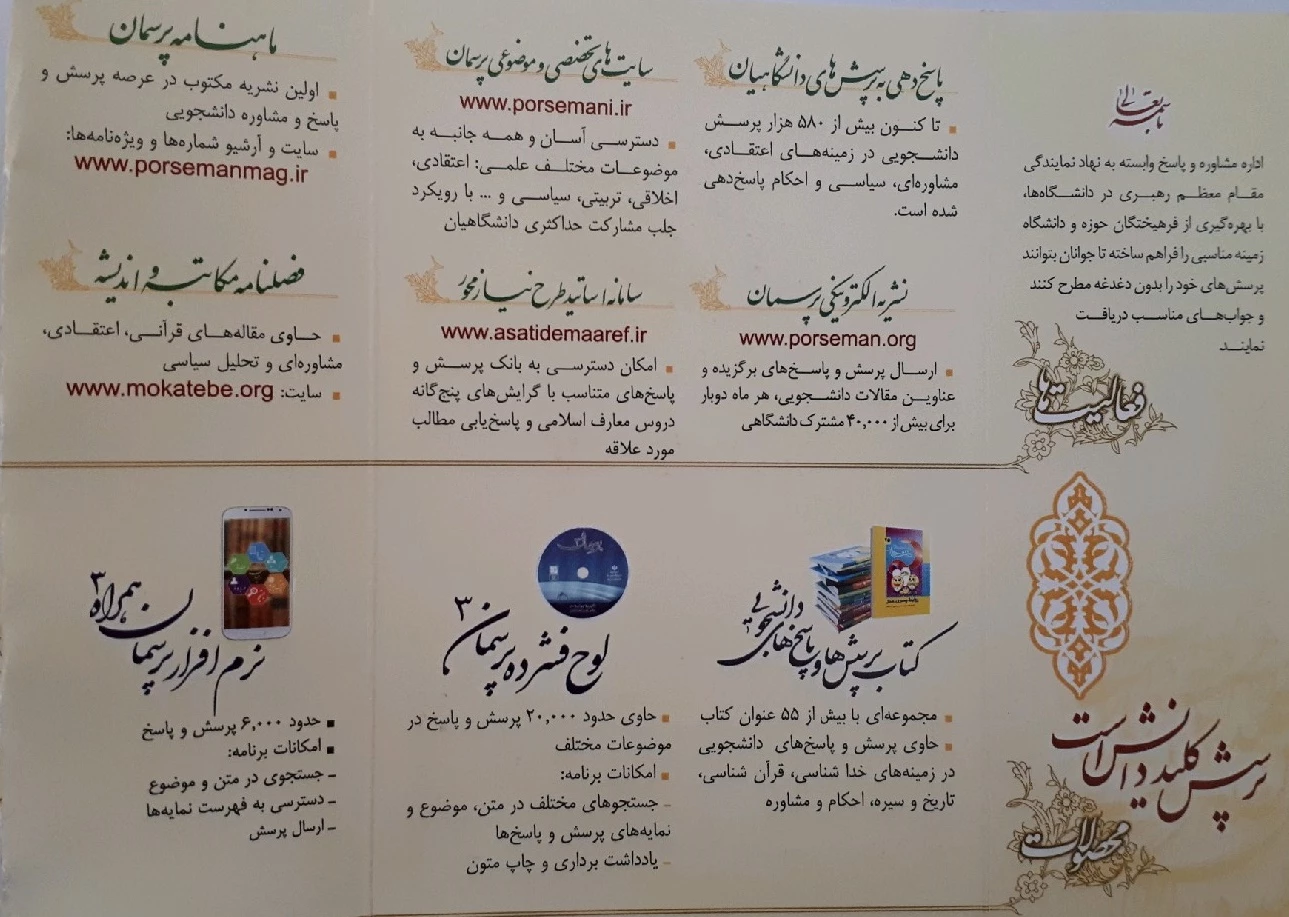 باسمه تعالی
اداره مشاوره و پاسخ وابسته به نهاد نمایندگی
مقـام معظـم رهبـری در دانشـگاه‌ها،
با بهره‌گیری از فرهیختگان حوزه و دانشگاه
زمینه مناسبی را فراهم ساخته تا جوانان بتوانند
پرسش‌های خود را بدون دغدغه مطرح کنند
و جواب‌هـای مناسـب دریافـت
نماینـد
فعالیت‌ها
پاسخ‌دهی به پرسش‌های دانشگاهیان
تا کنـون بیش از ۵۸۰ هزار پرسـش
دانشـجویی در زمینه‌هـای اعتقـادی،
مشاوره‌ای، سیاسی و احکام پاسخ‌دهی
شده است.
نشریه الکترونیکی پرسمان
www.porseman.org
ارسـال پرسش و پاسـخ‌های برگزیده و
عناویـن مقالات دانشـجویی، هر ماه دوبار
برای بیش از ۴۰,۰۰۰ مشترک دانشگاهی
سایت‌های تخصصی و موضوعی پرسمان
www.porsemani.ir
دسترسـی آسـان و همـه جانبـه بـه
موضوعـات مختلـف علمـی: اعتقـادی،
اخلاقی، تربیتی، سیاسـی و ... با رویکرد
جلب مشارکت حداکثری دانشگاهیان
سامانه اساتید طرح نیازمحور
www.asatidemaaref.ir
امـکان دسترسـی به بانـک پرسـش و
پاسخ‌های متناسب با گرایش‌های پنج‌گانه
دروس معارف اسلامی و پاسخ‌یابی مطالب
مورد علاقه
ماهنامه پرسمان
اولین نشریه مکتوب در عرصه پرسش و
پاسخ و مشاوره دانشجویی
سایت و آرشیو شماره‌ها و ویژه‌نامه‌ها:
www.porsemanmag.ir
فصلنامه مکاتبه و اندیشه
حـاوی مقاله‌هـای قرآنـی، اعتقـادی،
مشاوره‌ای و تحلیل سیاسی
سایت: www.mokatebe.org
پرسش کلید دانش است
محصولات
کتاب پرسش‌ها و پاسخ‌های دانشجویی
مجموعه‌ای با بیش از ۵۵ عنوان کتاب
حاوی پرسش و پاسخ‌های دانشجویی
در زمینه‌های خدا شناسی، قرآن شناسی،
تاریخ و سیره، احکام و مشاوره
لوح فشرده پرسمان ۳
حاوی حدود ۲۰,۰۰۰ پرسش و پاسخ در
موضوعات مختلف
امکانات برنامه:
- جستجوهای مختلف در متن، موضوع و
نمایه‌های پرسش و پاسخ‌ها
- یادداشت برداری و چاپ متون
نرم افزار پرسمان همراه ۳
حدود ۶,۰۰۰ پرسش و پاسخ
امکانات برنامه:
- جستجوی در متن و موضوع
- دسترسی به فهرست نمایه‌ها
- ارسال پرسش